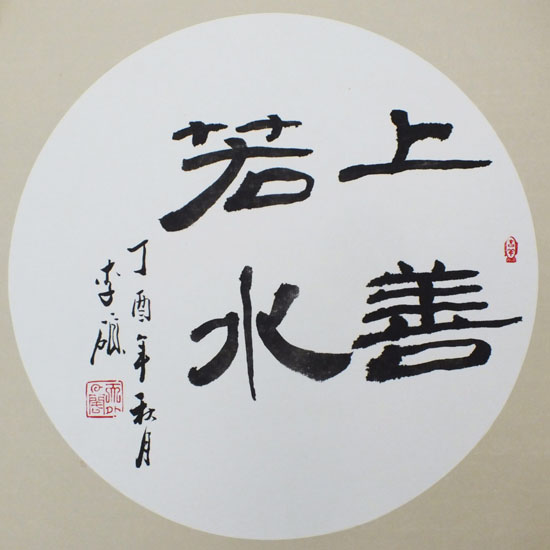 上善
若水
丁酉年秋月
李硕